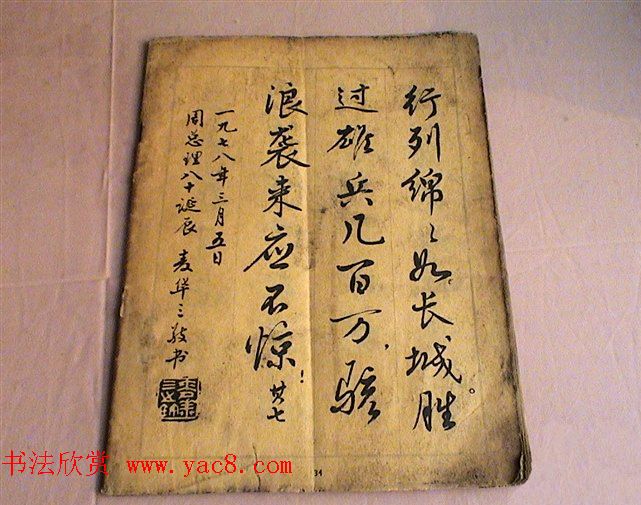 行列绵〻如长城。胜
过雄兵几百万，骇
浪袭来应不惊！其七
一九七八年三月五日
周总理八十诞辰 麦华三敬书
34
书法欣赏 www.yac8.com